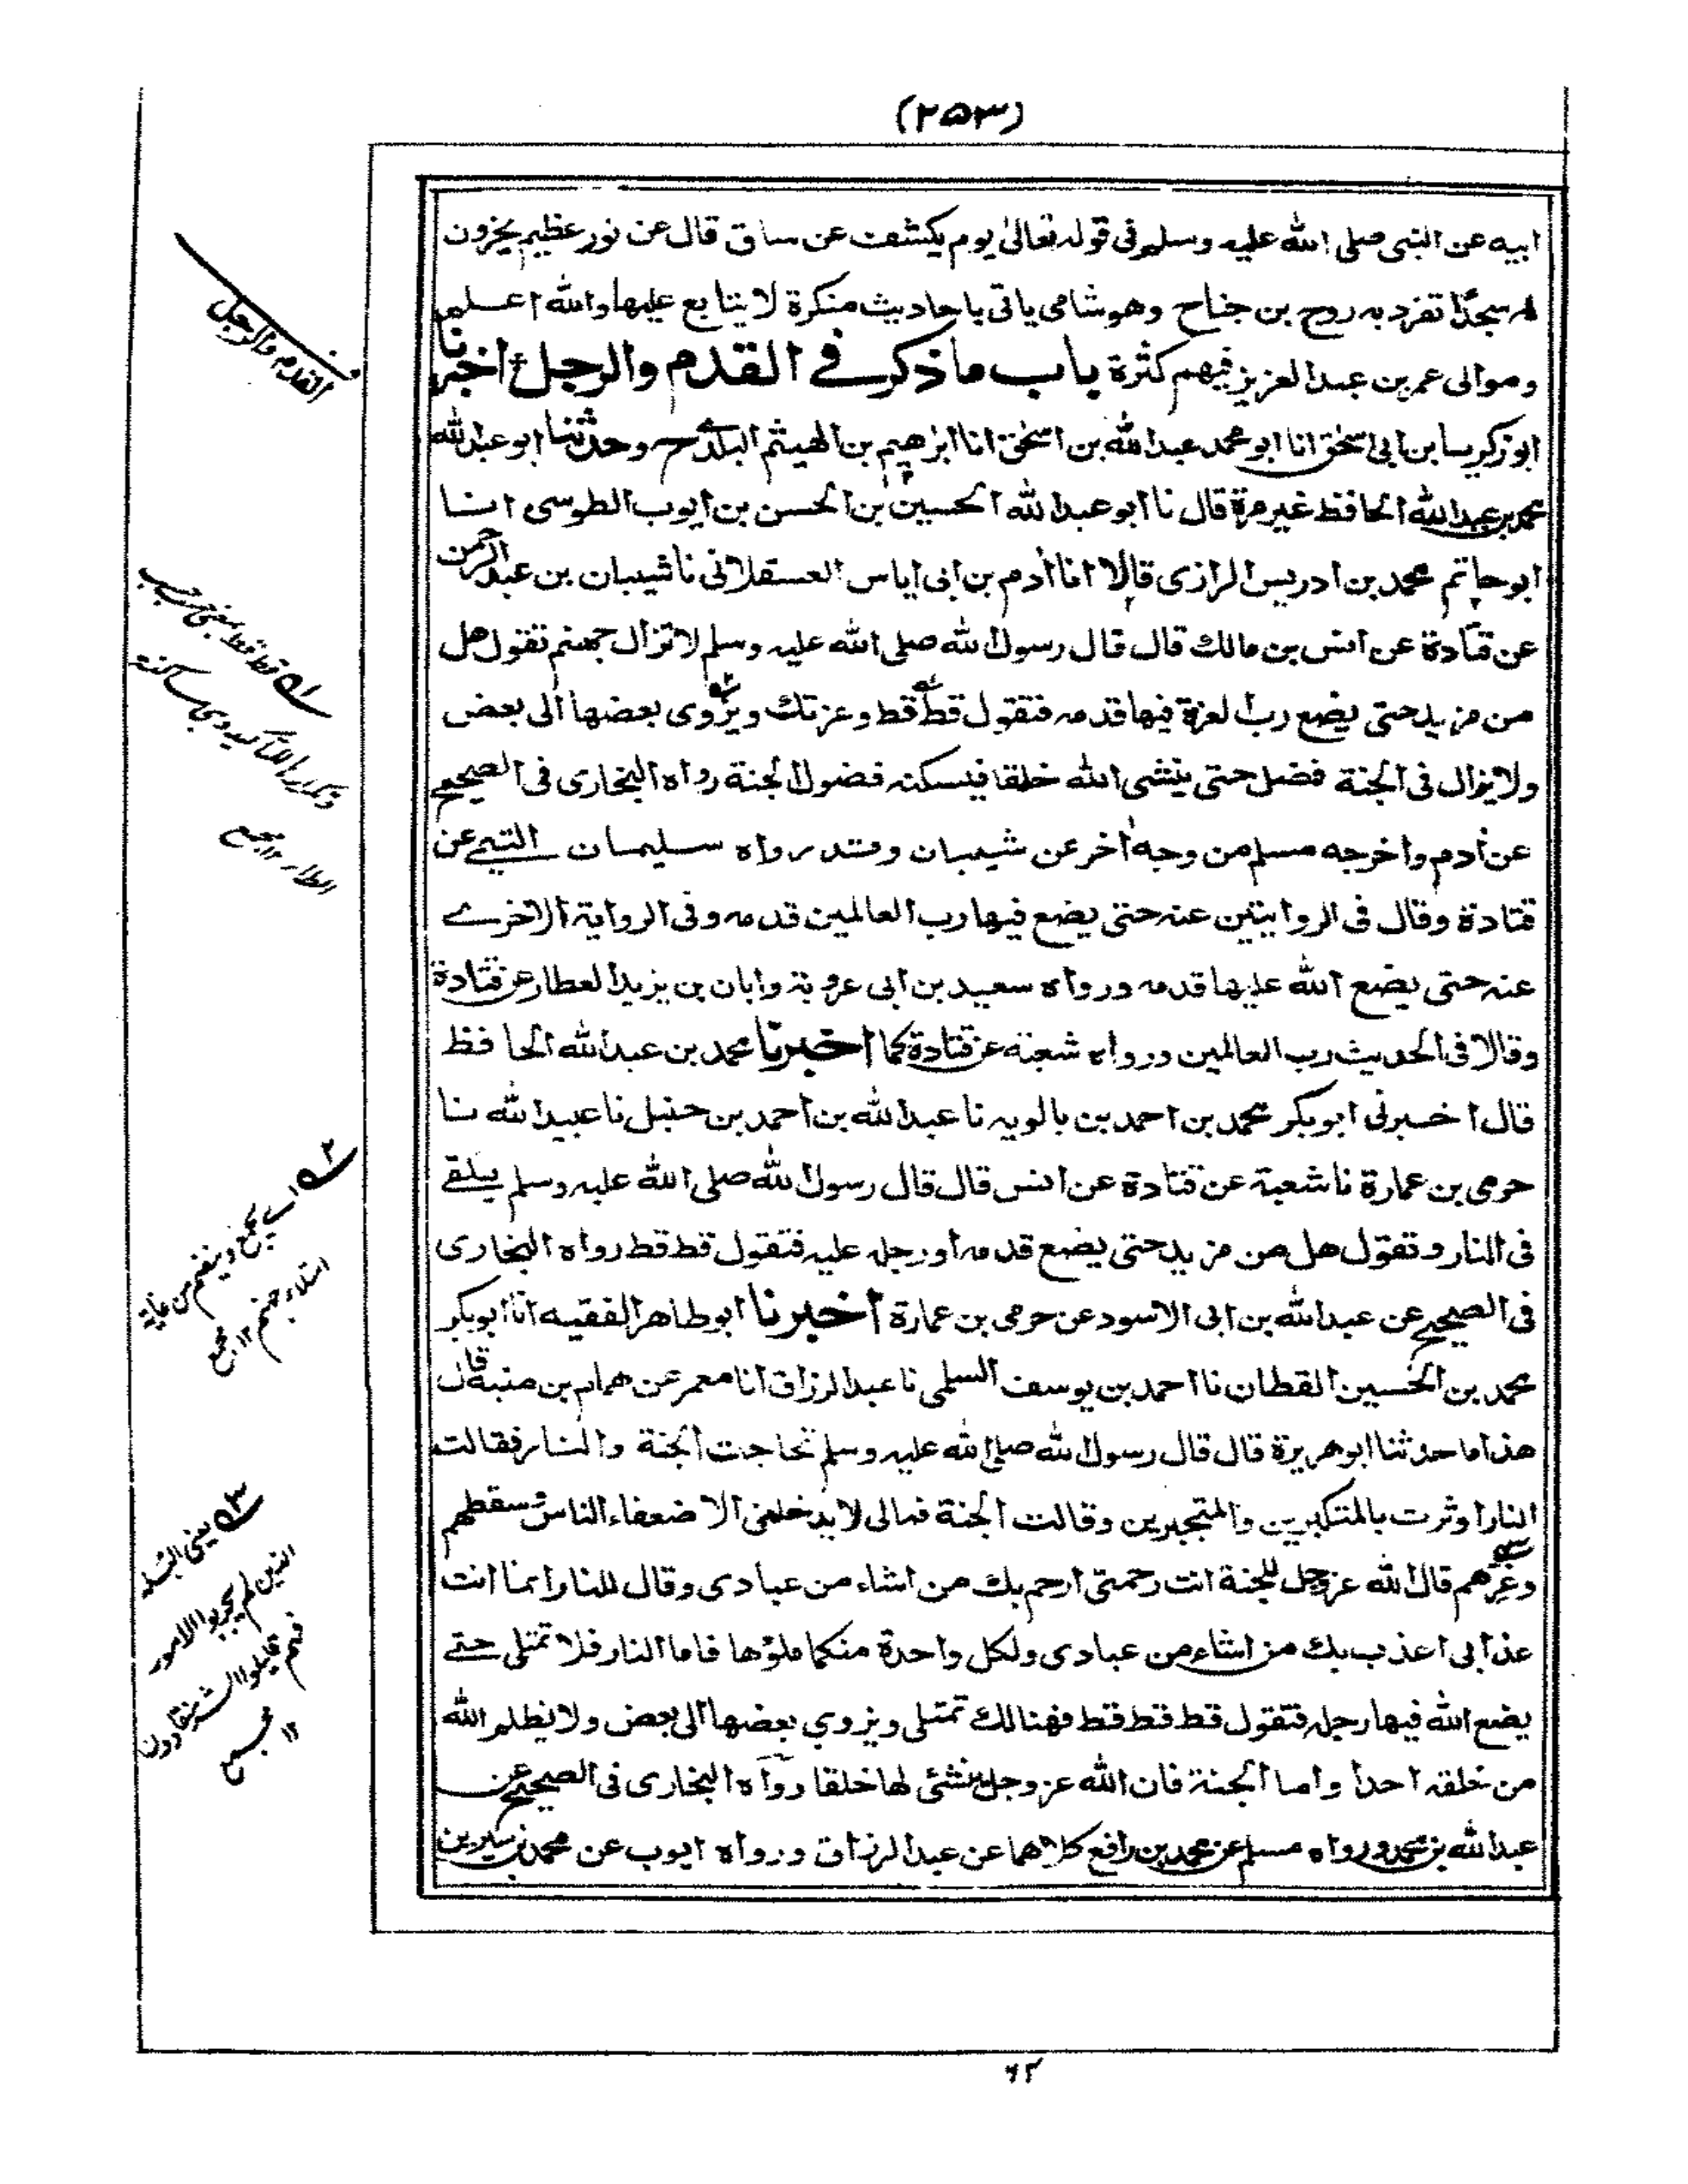 (۲۵۳)
ابيه عن النبى صلى الله عليه وسلم فى قوله تعالى يوم يكشف عن ساق قال عن نور عظيم يخرون
له سجدًا تفرد به روح بن جناح وهو شامى ياتى باحاديث منكرة لا يتابع عليها والله اعلم
وموالى عمر بن عبد العزيز فيهم كثرة باب ما ذكر فے القدم والرجل اخبرنا
ابو زكريا بن ابى اسحق انا ابو محمد عبد الله بن اسحق انا ابرهيم بن الهيثم البلدى ح وحدثنا ابو عبد الله
محمد بن عبد الله الحافظ غير مرة قال نا ابو عبد الله الحسين بن الحسن بن ايوب الطوسى انبا
ابو حاتم محمد بن ادريس الرازى قالا انا آدم بن ابى اياس العسقلانى نا شيبان بن عبد الرحمن
عن قتادة عن انس بن مالك قال قال رسول الله صلى الله عليه وسلم لا تزال جهنم تقول هل
من مزيد حتى يضع رب العزة فيها قدمه فتقول قط قط وعزتك ويزوى بعضها الى بعض
ولا يزال فى الجنة فضل حتى ينشى الله خلقا فيسكنه فضول الجنة رواه البخارى فى الصحيح
عن آدم واخرجه مسلم من وجه آخر عن شيبان وقد رواه سليمان التيمے عن
قتادة وقال فى الروايتين عنه حتى يضع فيها رب العالمين قدمه وفى الرواية الاخرے
عنه حتى يضع الله عليها قدمه ورواه سعيد بن ابى عروبة وابان بن يزيد العطار عن قتادة
وقالا فى الحديث رب العالمين ورواه شعبة عن قتادة كما اخبرنا محمد بن عبد الله الحافظ
قال اخبرنى ابو بكر محمد بن احمد بن بالويه نا عبد الله بن احمد بن حنبل نا عبيد الله نا
حرمى بن عمارة نا شعبة عن قتادة عن انس قال قال رسول الله صلى الله عليه وسلم يلقے
فى النار وتقول هل من مزيد حتى يضع قدمه او رجله عليه فتقول قط قط رواه البخارى
فى الصحيح عن عبد الله بن ابى الاسود عن حرمى بن عمارة اخبرنا ابو طاهر الفقيه انا ابو بكر
محمد بن الحسين القطان نا احمد بن يوسف السلمى نا عبد الرزاق انا معمر عن همام بن منبه قال
هذا ما حدثنا ابو هريرة قال قال رسول الله صلى الله عليه وسلم تحاجت الجنة والنار فقالت
النار اوثرت بالمتكبرين والمتجبرين وقالت الجنة فمالى لا يدخلنى الا ضعفاء الناس وسقطهم
وغرهم قال الله عز وجل للجنة انت رحمتى ارحم بك من اشاء من عبادى وقال للنار انما انت
عذابى اعذب بك من اشاء من عبادى ولكل واحدة منكما ملؤها فاما النار فلا تمتلى حتے
يضع الله فيها رجله فتقول قط قط قط فهنالك تمتلى ويزوي بعضها الى بعض ولا يظلم الله
من خلقه احدا واما الجنة فان الله عز وجل ينشئ لها خلقا رواه البخارى فى الصحيح عن
عبد الله بن محمد ورواه مسلم عن محمد بن رافع كلاهما عن عبد الرزاق ورواه ايوب عن محمد بن سيرين
القدم والرجل
۱ قط قط بمعنى حسب
وتكرار للتاكيد وهى ساكنة
الطاء ۱۲ مجمع
۲ اے يجمع وينضم من غاية
امتلاء جهنم ۱۲ مجمع
۳ يعنى البله
الذين لم يجربوا الامور
فهم قليلوا الشر منقادون
۱۲
۶۲